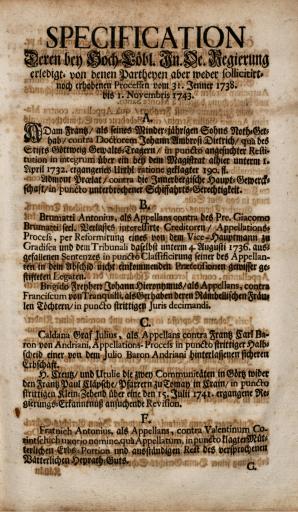 SPECIFICATION
Deren bey Hoch-Löbl. In. Oe. Regierung
erledigt- von denen Partheyen aber weder sollicitirt-
noch erhobenen Processen vom 31. Jenner 1738.
bis 1. Novembris 1743.
A.
ADam Frantz, als seines Minder-jährigen Sohns Noth-Ger-
hab, contra Doctorem Johann Ambrosi Dietrich, qua des
Stifts Göttweig Gewalts-Tragern, in puncto angesuchter Resti-
tution in integrum über ein bey dem Magistrat allhier unterm 1.
April 1732. ergangenes Urthl ratione geklagter 190. fl.
Admont Prælat, contra die Innerbergische Haupt-Gewerck-
schaft, in puncto unterbrochener Schiffahrts-Gerechtigkeit.
B.
Brumatti Antonius, als Appellans contra des Pre. Giacomo
Brumatti seel. Verlasses interessirte Creditoren, Appellations-
Process, per Reformirung eines von dem Vice-Hauptmann zu
Gradisca und dem Tribunali daselbst unterm 4. Augusti 1736. aus-
gefallenen Sentenzes in puncto Classificirung seiner des Appellan-
ten in dem Abschid nicht einkommenden Prætensionen gewisser ge-
stiffteten Legaten.
Brigido Freyherr Johann Hieronymus, als Appellans, contra
Franciscum von Tranquilli, als Gerhaben deren Räm­bellischen Fräu-
len Töchtern, in puncto strittigen Juris decimandi.
C.
Caldana Graf Julius, als Appellans contra Frantz Carl Ba-
ron von Andriani, Appellations-Process in puncto strittiger Halb-
scheid einer von dem Julio Baron Andriani hinterlassenen sicheren
Erbschaft.
H. Creutz, und Utulie die zwey Communitäten in Görtz wider
den Frantz Paul Cläpsche, Pfarrern zu Tomay in Crain, in puncto
strittigen Klein-Zehend über eine den 15. Julii 1741. ergangene Re-
gierungs-Erkanntnuß ansuchende Revision.
F.
Fratnich Antonius, als Appellans, contra Valentinum Co-
rintschich uxorio nomine, quà Appellatum, in puncto klagter Müt-
terlichen Erbs-Portion und ausständigen Rest des versprochenen
Vätterlichen Heyrath-Guts.
G.